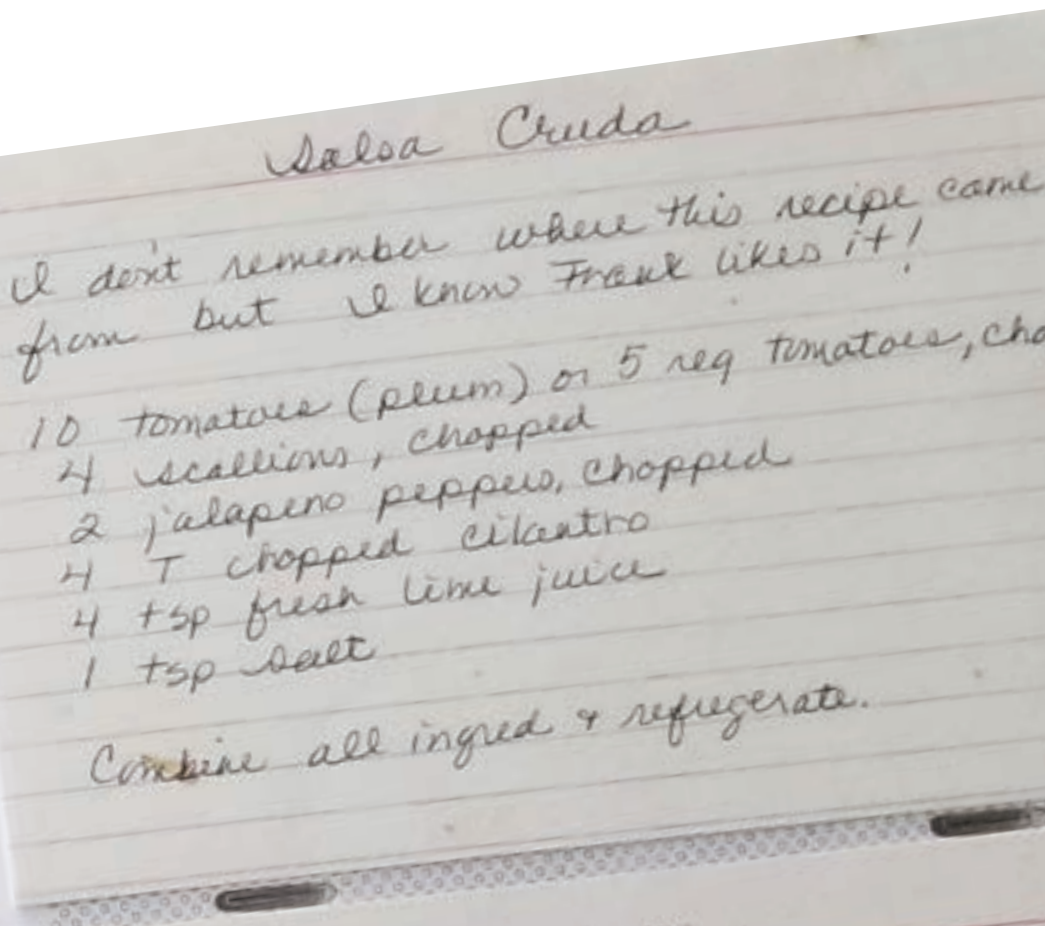 Salsa Cruda
I don't remember where this recipe came
from but I know Frank likes it!
10 tomatoes (plum) or 5 reg tomatoes, cho
4 scallions, chopped
2 jalapeno peppers, chopped
4 T chopped cilantro
4 tsp fresh lime juice
1 tsp salt
Combine all ingred & refrigerate.